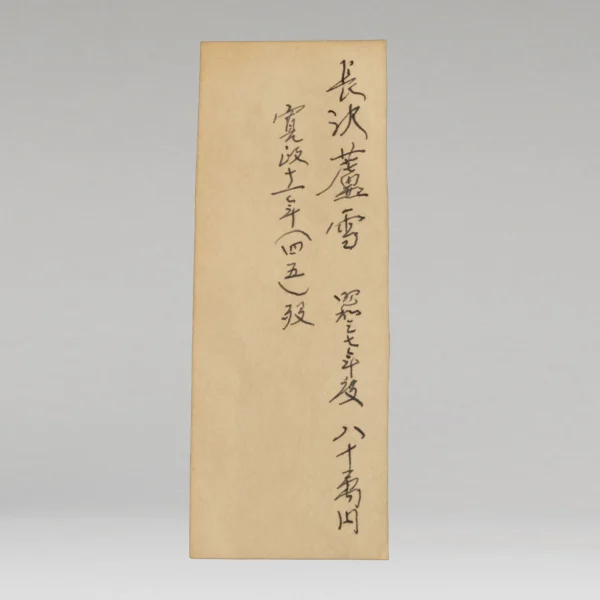 長沢蘆雪 昭和三七年度 八十萬円
寛政十一年(四五)歿